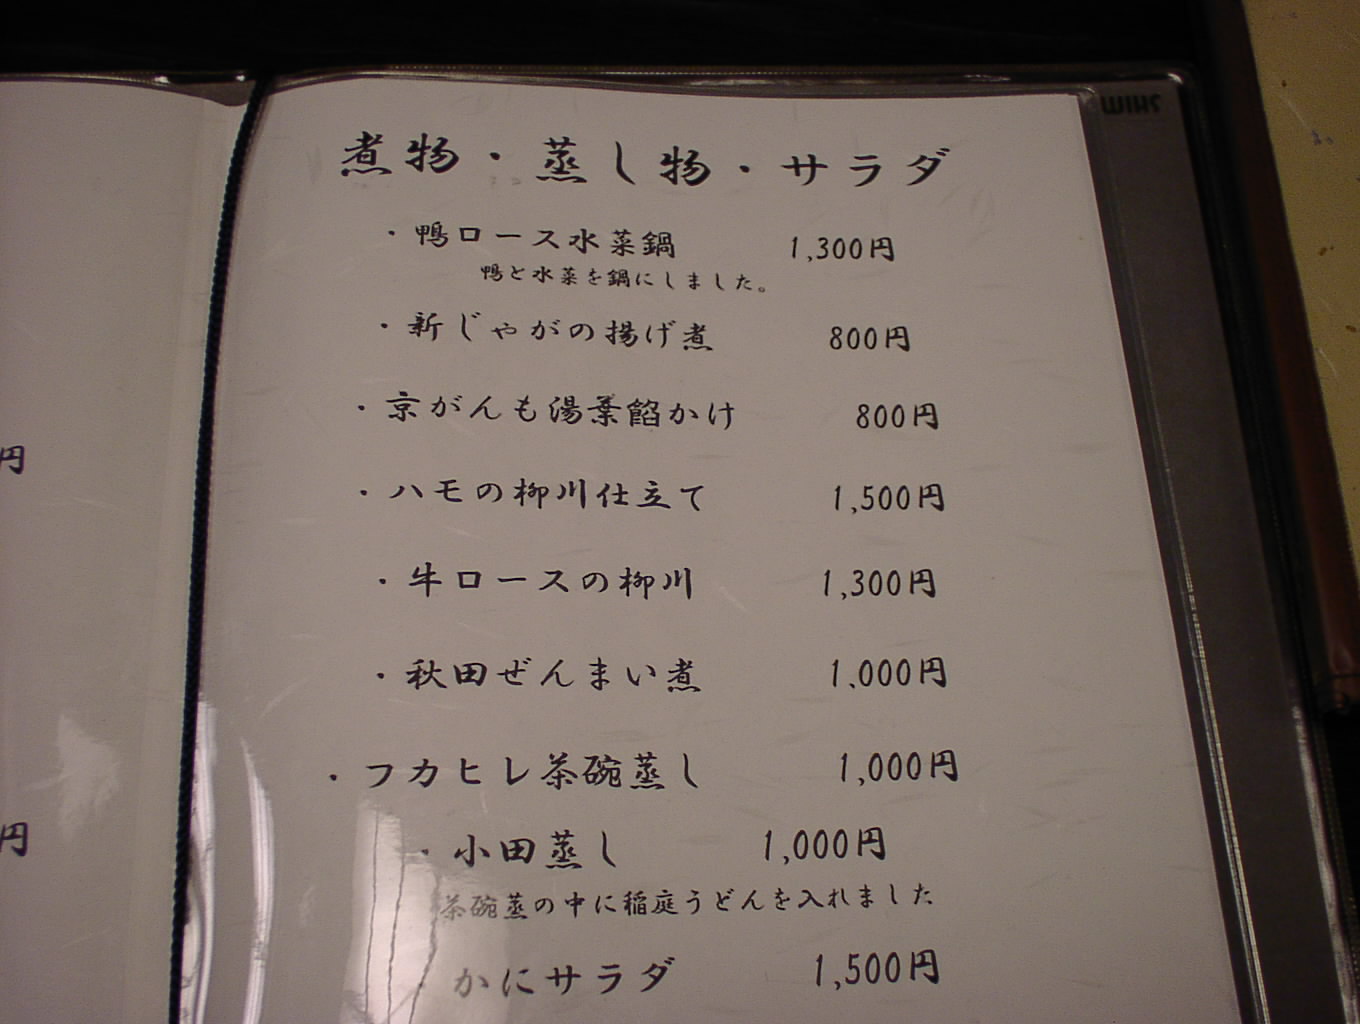 煮物・蒸し物・サラダ
・鴨ロース水菜鍋 1,300円
鴨と水菜を鍋にしました。
・新じゃがの揚げ煮 800円
・京がんも湯葉餡かけ 800円
・ハモの柳川仕立て 1,500円
・牛ロースの柳川 1,300円
・秋田ぜんまい煮 1,000円
・フカヒレ茶碗蒸し 1,000円
・小田蒸し 1,000円
茶碗蒸の中に稲庭うどんを入れました
かにサラダ 1,500円
円
円